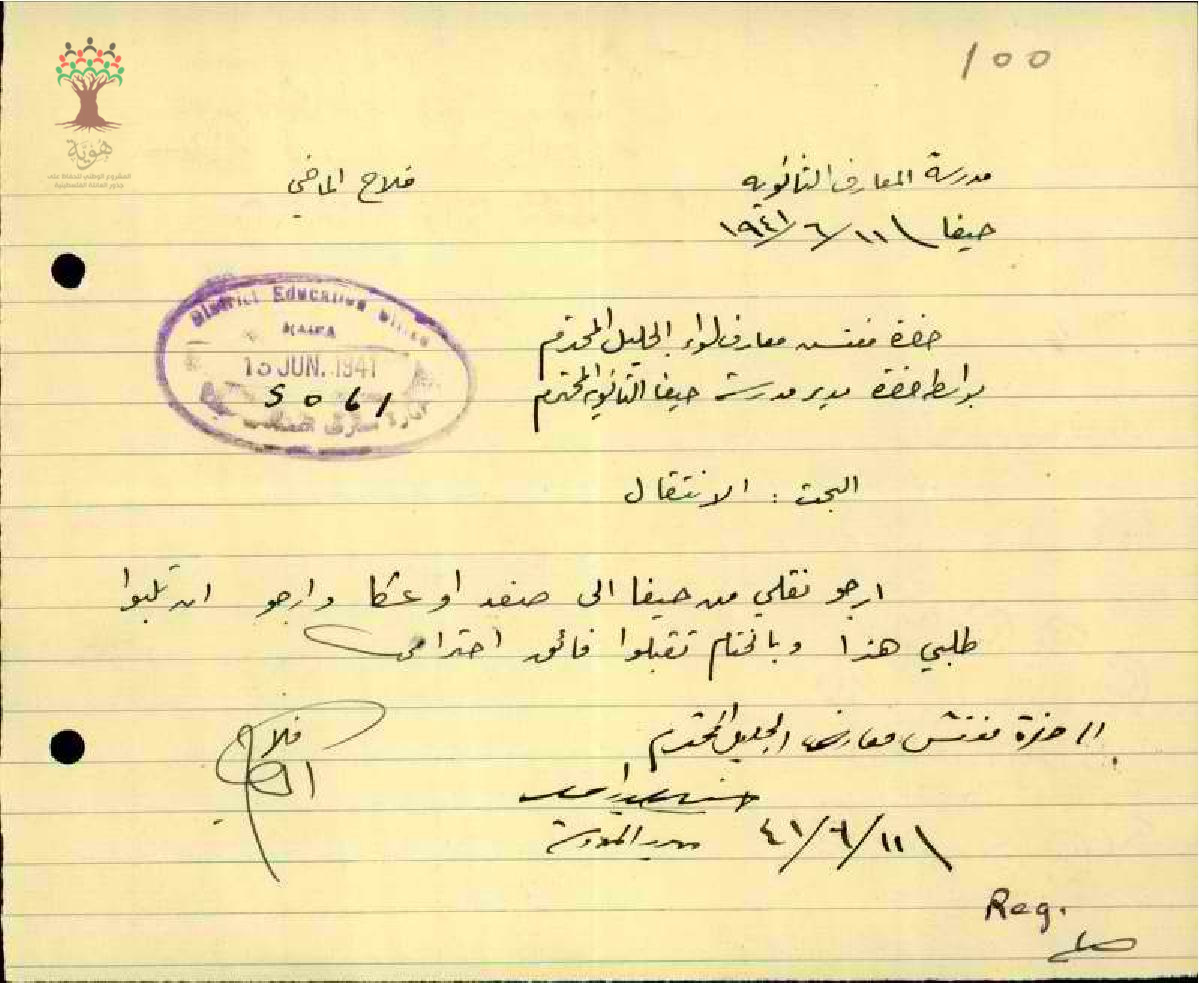 100
هُوِيَّة
المشروع الوطني للحفاظ على
جذور العائلة الفلسطينية
مدرسة المعارف الثانويه
فلاح الماضي
حيفا ١١/٦/١٩٤١
District Education Office
HAIFA
13 JUN. 1941
5061
حضرة مفتش معارف لواء الجليل المحترم
بواسطة حضرة مدير مدرسة حيفا الثانوية المحترم
البحث : الانتقال
ارجو نقلي من حيفا الى صفد او عكا وارجو ان تلبوا
طلبي هذا وبالختام تقبلوا فائق احترامي
فلاح
الى حضرة مفتش معارف الجليل المحترم
مدير المدرسة
١١/٦/٤١
Reg.